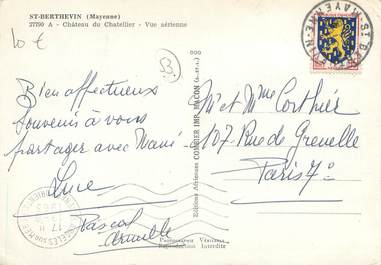 ST-BERTHEVIN (Mayenne)
27790 A - Château du Chatellier - Vue aérienne
10 €
B
Bien affectueux
souvenir à vous
partager avec Mami
Luce
Pascal
Armelle
Editions Aériennes COMBIER IMP. MACON
Reproduction Interdite
ST-B
MAYENNE
M et Mme Corthier
127 Rue de Grenelle
Paris 7e
17